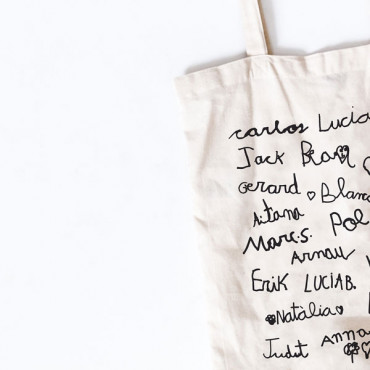 carlos Lucía
Jack
Gerard Blanc
Aitana
Marc.S. Pol
Arnau
Erik LUCÍA B.
Natàlia
Judit Anna